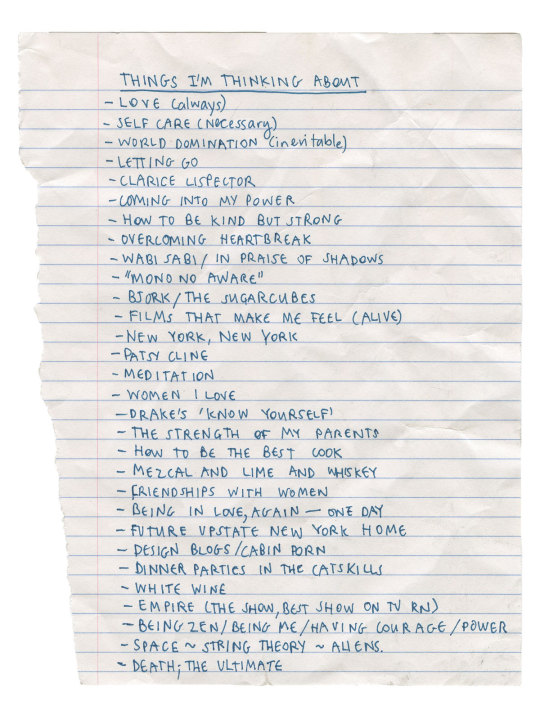 THINGS I'M THINKING ABOUT
- LOVE (always)
- SELF CARE (Necessary)
- WORLD DOMINATION (inevitable)
- LETTING GO
- CLARICE LISPECTOR
- COMING INTO MY POWER
- HOW TO BE KIND BUT STRONG
- OVERCOMING HEARTBREAK
- WABI SABI / IN PRAISE OF SHADOWS
- "MONO NO AWARE"
- BJORK / THE SUGARCUBES
- FILMS THAT MAKE ME FEEL (ALIVE)
- NEW YORK, NEW YORK
- PATSY CLINE
- MEDITATION
- WOMEN I LOVE
- DRAKE'S 'KNOW YOURSELF'
- THE STRENGTH OF MY PARENTS
- HOW TO BE THE BEST COOK
- MEZCAL AND LIME AND WHISKEY
- FRIENDSHIPS WITH WOMEN
- BEING IN LOVE, AGAIN — ONE DAY
- FUTURE UPSTATE NEW YORK HOME
- DESIGN BLOGS / CABIN PORN
- DINNER PARTIES IN THE CATSKILLS
- WHITE WINE
- EMPIRE (THE SHOW, BEST SHOW ON TV RN)
- BEING ZEN / BEING ME / HAVING COURAGE / POWER
- SPACE ~ STRING THEORY ~ ALIENS.
~ DEATH; THE ULTIMATE